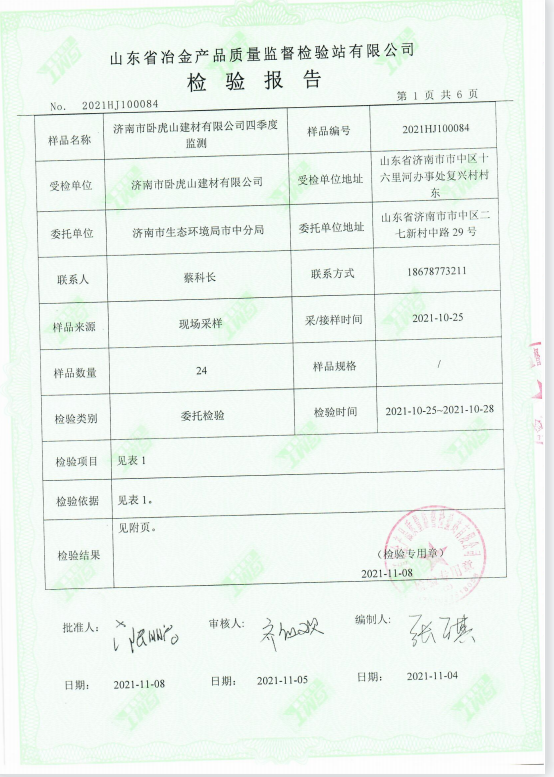 山东省冶金产品质量监督检验站有限公司
检验报告
No. 2021HJ100084
第 1 页 共 6 页
样品名称
济南市卧虎山建材有限公司四季度
监测
样品编号
2021HJ100084
受检单位
济南市卧虎山建材有限公司
受检单位地址
山东省济南市市中区十
六里河办事处复兴村村
东
委托单位
济南市生态环境局市中分局
委托单位地址
山东省济南市市中区二
七新村中路 29 号
联系人
蔡科长
联系方式
18678773211
样品来源
现场采样
采/接样时间
2021-10-25
样品数量
24
样品规格
/
检验类别
委托检验
检验时间
2021-10-25~2021-10-28
检验项目
见表 1
检验依据
见表 1。
检验结果
见附页。
（检验专用章）
2021-11-08
批准人：
审核人：
编制人：
张琪
日期： 2021-11-08
日期： 2021-11-05
日期： 2021-11-04